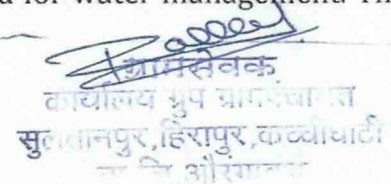 d for water management. Th
ग्रामसेवक
कार्यालय ग्रुप ग्रामपंचायत
सुलतानपुर,हिरापुर,कच्चीघाटी
ता. जि. औरंगाबाद